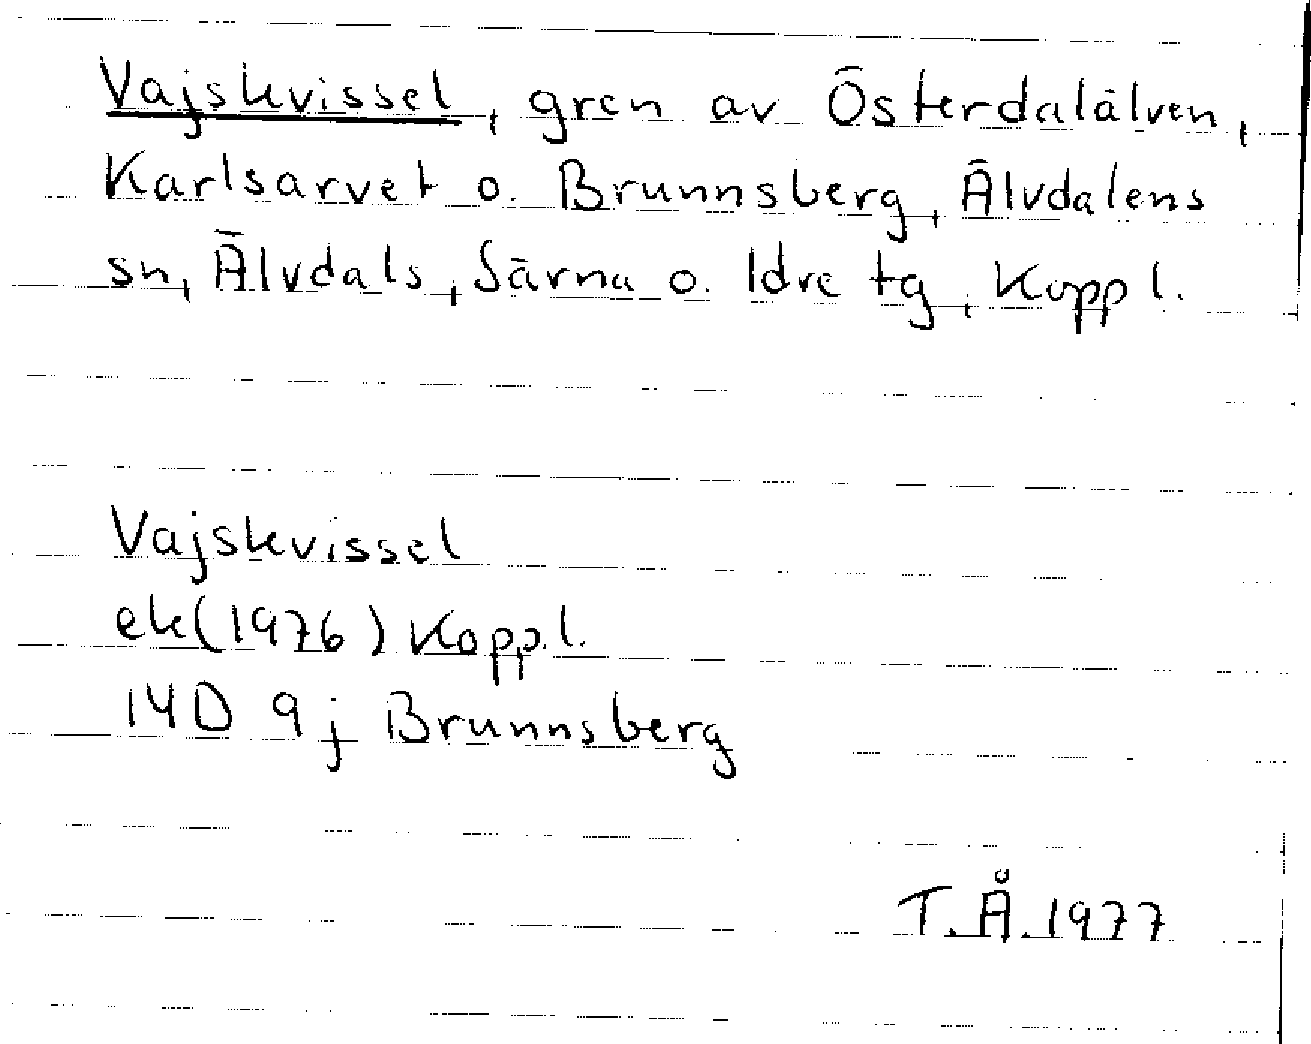 Vajskvissel, gren av Österdalälven,
Karlsarvet o. Brunnsberg, Älvdalens
sn, Älvdals, Särna o. Idre tg, Koppl.
Vajskvissel
ek(1976) Kopp.l.
14D 9j Brunnsberg
T.Å.1977